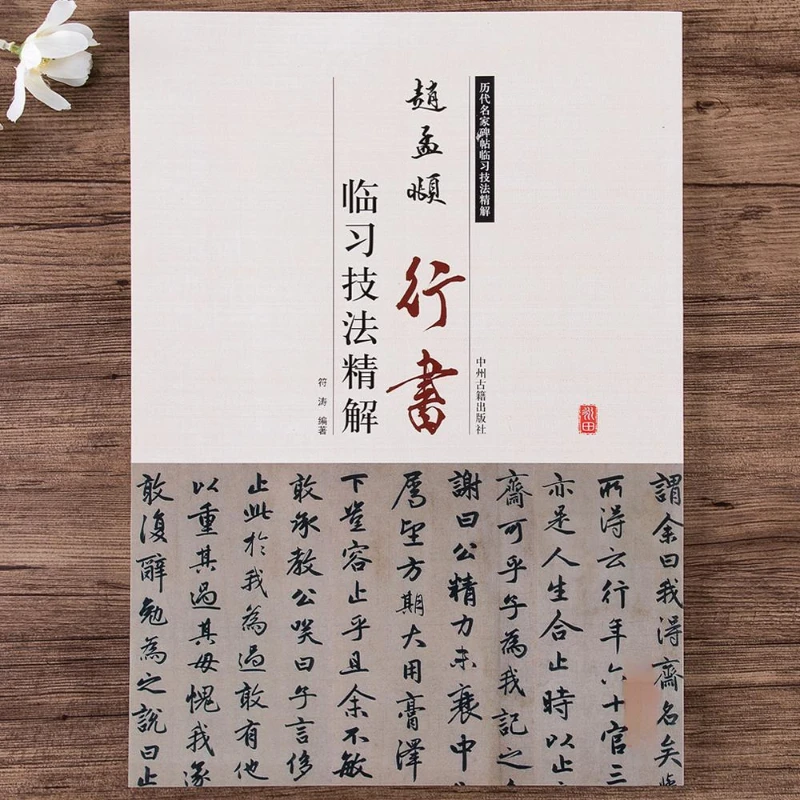 历代名家碑帖临习技法精解
中州古籍出版社
趙孟頫
行書
临习技法精解
符涛 编著
謂余曰我得齋名矣
所得云行年六十官三
亦是人生合止時以止
齋可乎子為我記之
謝曰公精力未衰中
屬望方期大用膏澤
下豈容止乎且余不敏
敢承教公笑曰子言侈
止此於我為過敢有他
以重其過其毋愧我遂
敢復辭勉為之說曰止